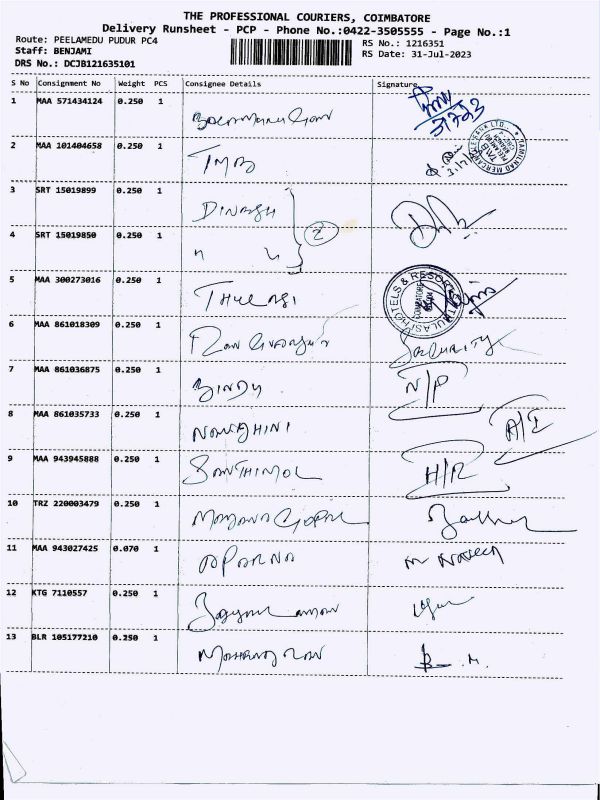 THE PROFESSIONAL COURIERS, COIMBATORE
Delivery Runsheet - PCP - Phone No.:0422-3505555 - Page No.:1
Route: PEELAMEDU PUDUR PC4
Staff: BENJAMI
DRS No.: DCJB121635101
RS No.: 1216351
RS Date: 31-Jul-2023
S No Consignment No Weight PCS Consignee Details Signature
1 MAA 571434124 0.250 1
2 MAA 101404658 0.250 1 TMB
TAMILNAD MERCANTILE BANK LTD.
3 SRT 15019899 0.250 1 DINESH
2
4 SRT 15019850 0.250 1 "
5 MAA 300273016 0.250 1 THULASI
THULASI HOTELS & RESORTS
COIMBATORE
6 MAA 861018309 0.250 1 SECURITY
7 MAA 861036875 0.250 1 BINDU N/P
8 MAA 861035733 0.250 1 A/I
9 MAA 943945888 0.250 1 SANTHIMOL H/R
10 TRZ 220003479 0.250 1
11 MAA 943027425 0.070 1 APARNA
12 KTG 7110557 0.250 1
13 BLR 105177210 0.250 1